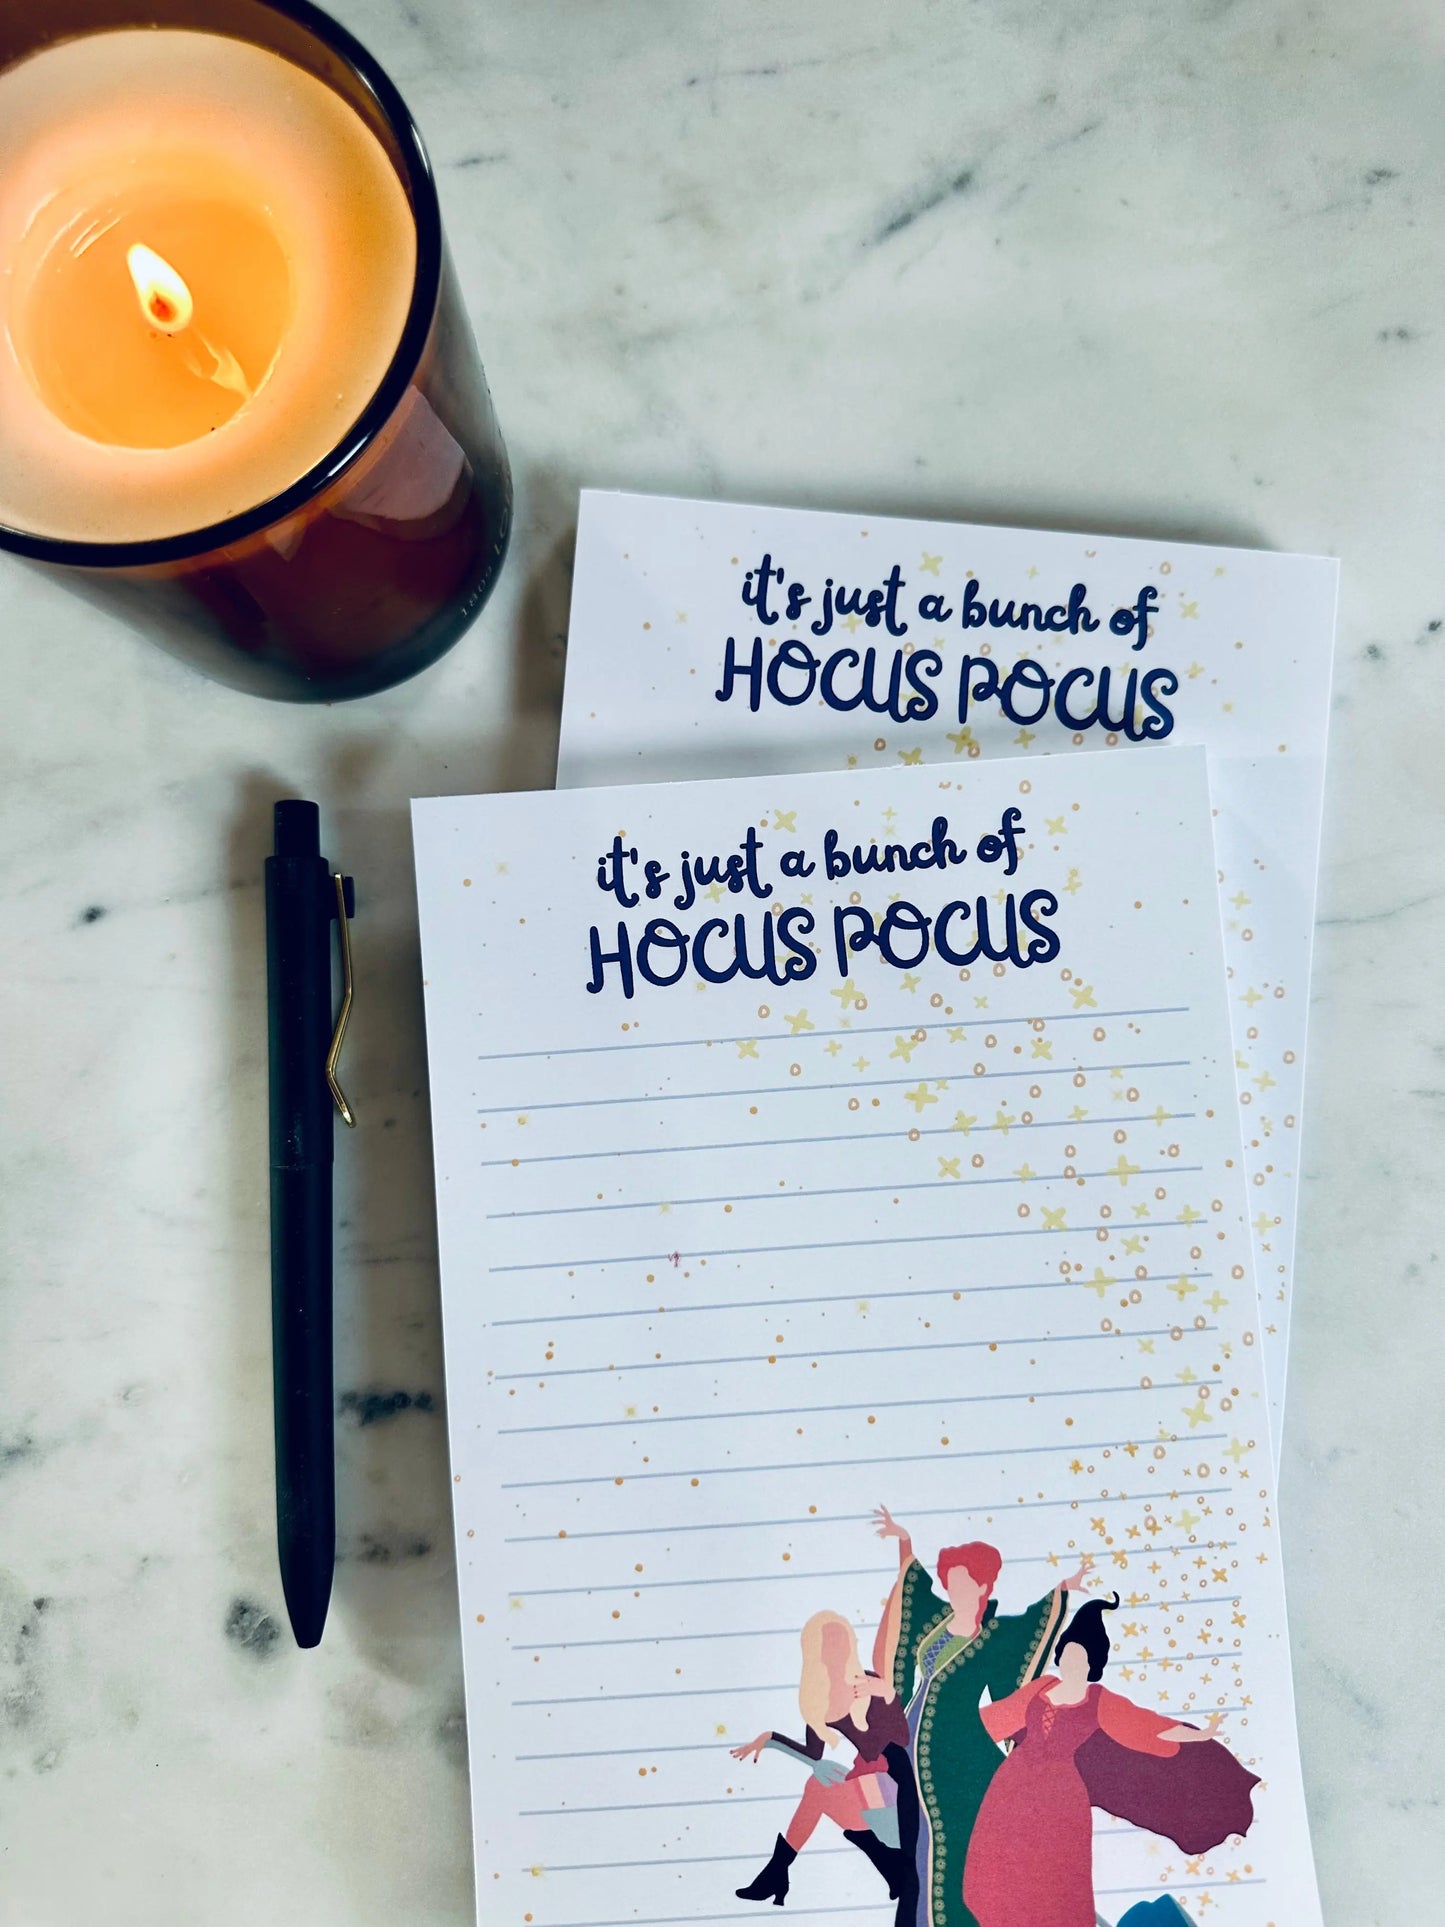 it's just a bunch of
HOCUS POCUS
it's just a bunch of
HOCUS POCUS